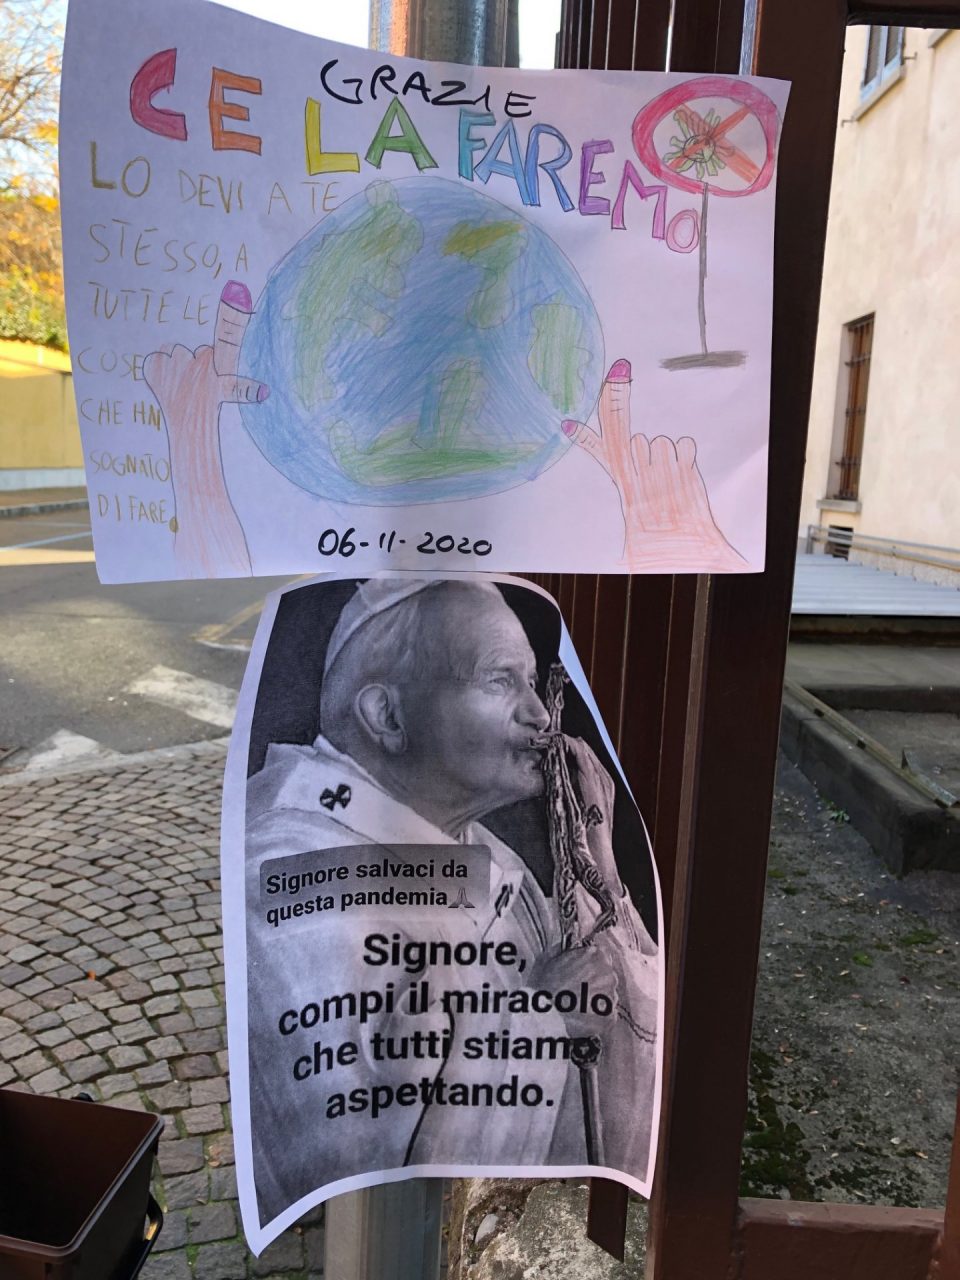 GRAZIE
CE LA FAREMO
LO DEVI A TE
STESSO, A
TUTTE LE
COSE
CHE HAI
SOGNATO
DI FARE.
06-11-2020
Signore salvaci da
questa pandemia🙏
Signore,
compi il miracolo
che tutti stiamo
aspettando.